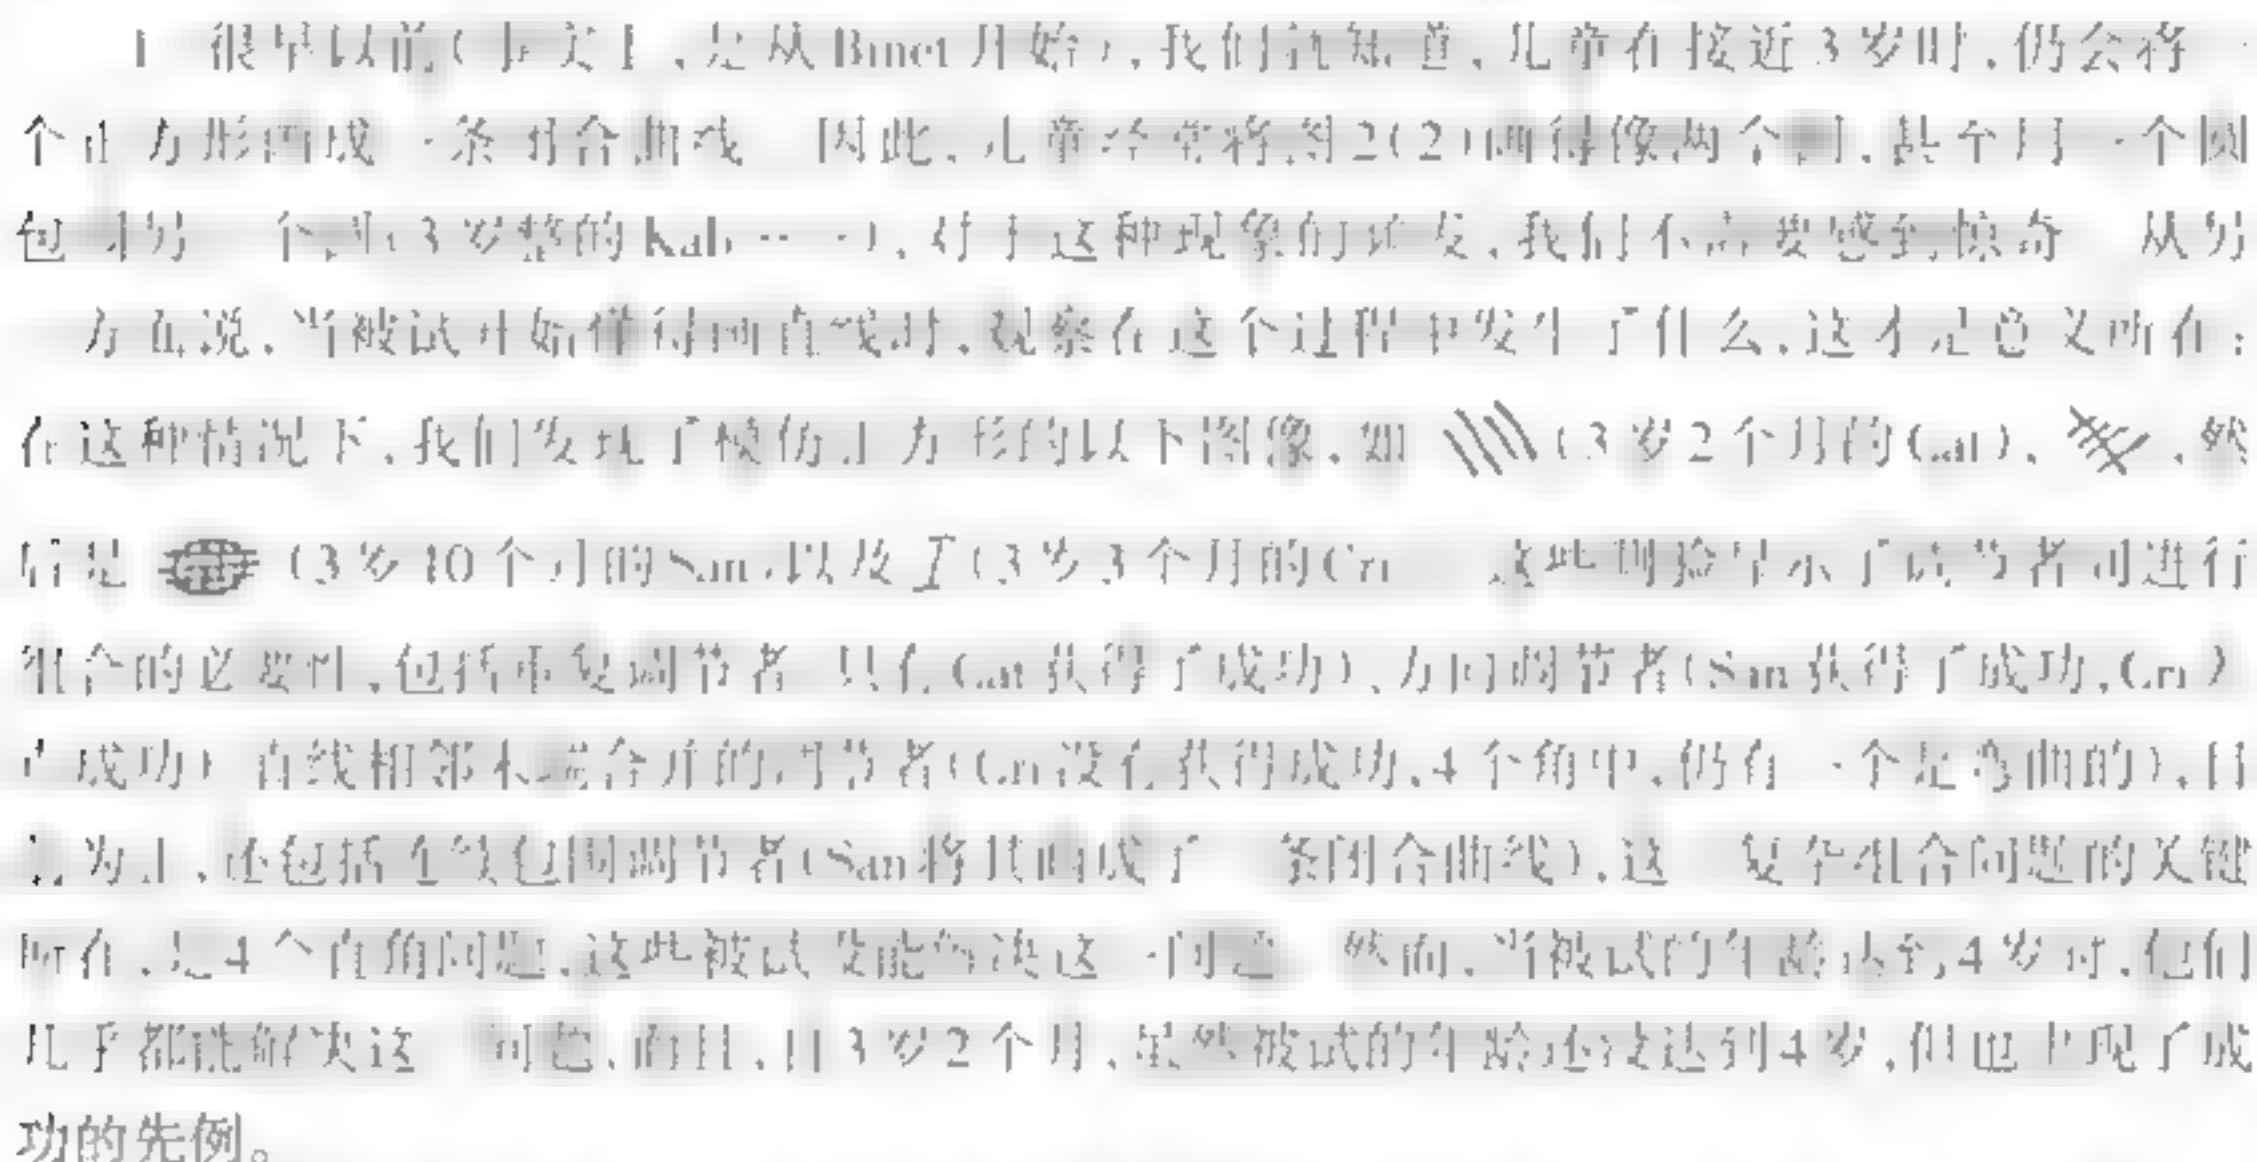 1 很早以前(事实上,是从Binet开始),我们就知道,儿童在接近3岁时,仍会将一
个正方形画成一条闭合曲线 因此,儿童经常将图2(2)画得像两个圆,甚至用一个圆
包围另一个圆(3岁整的Kab……),对于这种现象的迸发,我们不需要感到惊奇 从另
一方面说,当被试开始懂得画直线时,观察在这个过程中发生了什么,这才是意义所在:
在这种情况下,我们发现了模仿正方形的以下图像,如 (3岁2个月的Gat), ,然
后是 (3岁10个月的San)以及 (3岁3个月的Cri 这些测验显示了调节者可进行
组合的必要性,包括重复调节者 只有Gat获得了成功)、方向调节者(San获得了成功,Cri
也成功) 直线相邻末端合并的调节者(Cri没有获得成功,4个角中,仍有一个是弯曲的),目
前为止,还包括 包围调节者(San将其画成了一条闭合曲线),这一复杂组合问题的关键
所在,是4个直角问题,这些被试没能解决这一问题 然而,当被试的年龄达到4岁时,他们
几乎都能解决这一问题,而且,自3岁2个月,虽然被试的年龄还没达到4岁,但也出现了成
功的先例。